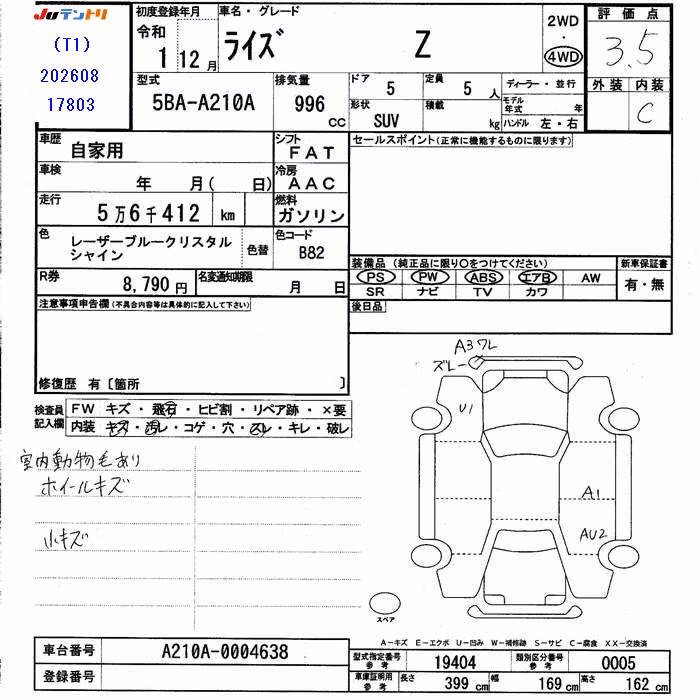 JUテントリ
(T1)
202608
17803
初度登録年月
令和
1 12月
車名・グレード
ライズ Z
2WD
・
4WD
評価点
3.5
外装 内装
C
型式
5BA-A210A
排気量
996
CC
ドア
5
定員
5 人
形状
SUV
積載
kg
ディーラー・並行
モデル年式 年
ハンドル 左・右
車歴
自家用
シフト
FAT
車検
年 月( 日)
冷房
AAC
走行
5万6千412 km
燃料
ガソリン
色
レーザーブルークリスタル
シャイン
色替
色コード
B82
R券
8,790円
名変通知期限
月 日
セールスポイント(正常に機能するものに限ります)
装備品(純正品に限り○をつけてください)
PS PW ABS エアB AW
SR ナビ TV カワ
新車保証書
有・無
後日品
注意事項申告欄(不具合内容等は具体的に記入して下さい)
修復歴 有〔箇所 〕
検査員
記入欄
FW キズ・飛石・ヒビ割・リペア跡・×要
内装 キズ・汚レ・コゲ・穴・スレ・キレ・破レ
室内動物毛あり
ホイールキズ
小キズ
A3ワレ
ズレ
U1
A1
AU2
スペア
A-キズ E-エクボ U-凹み W-補修跡 S-サビ C-腐食 XX-交換済
車台番号
A210A-0004638
登録番号
型式指定番号
参考
19404
類別区分番号
参考
0005
車庫証明用
参考
長さ 399 cm 幅 169 cm 高さ 162 cm